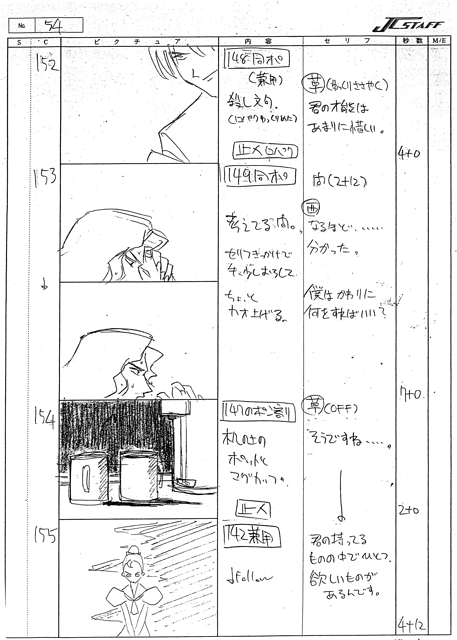 No. 54
J.C.STAFF
S C ピクチュア 内容 セリフ 秒数 M/E
152
148同ポ
(兼用)
殺し文句。
止メ
革
君の才能は
あまりに惜しい。
4+0
153
149同ポ
考えてる間。
セリフきっかけで
手少しおろして
ちょっと
カオ上げる。
間(2+12)
なるほど……
分かった。
僕はかわりに
何をすればいい?
7+0
154
147のポン寄
机の上の
ポットと
マグカップ。
止メ
革(OFF)
そうですね……。
2+0
155
142兼用
↓Follow
君の持ってる
ものの中でひとつ、
欲しいものが
あるんです。
4+12